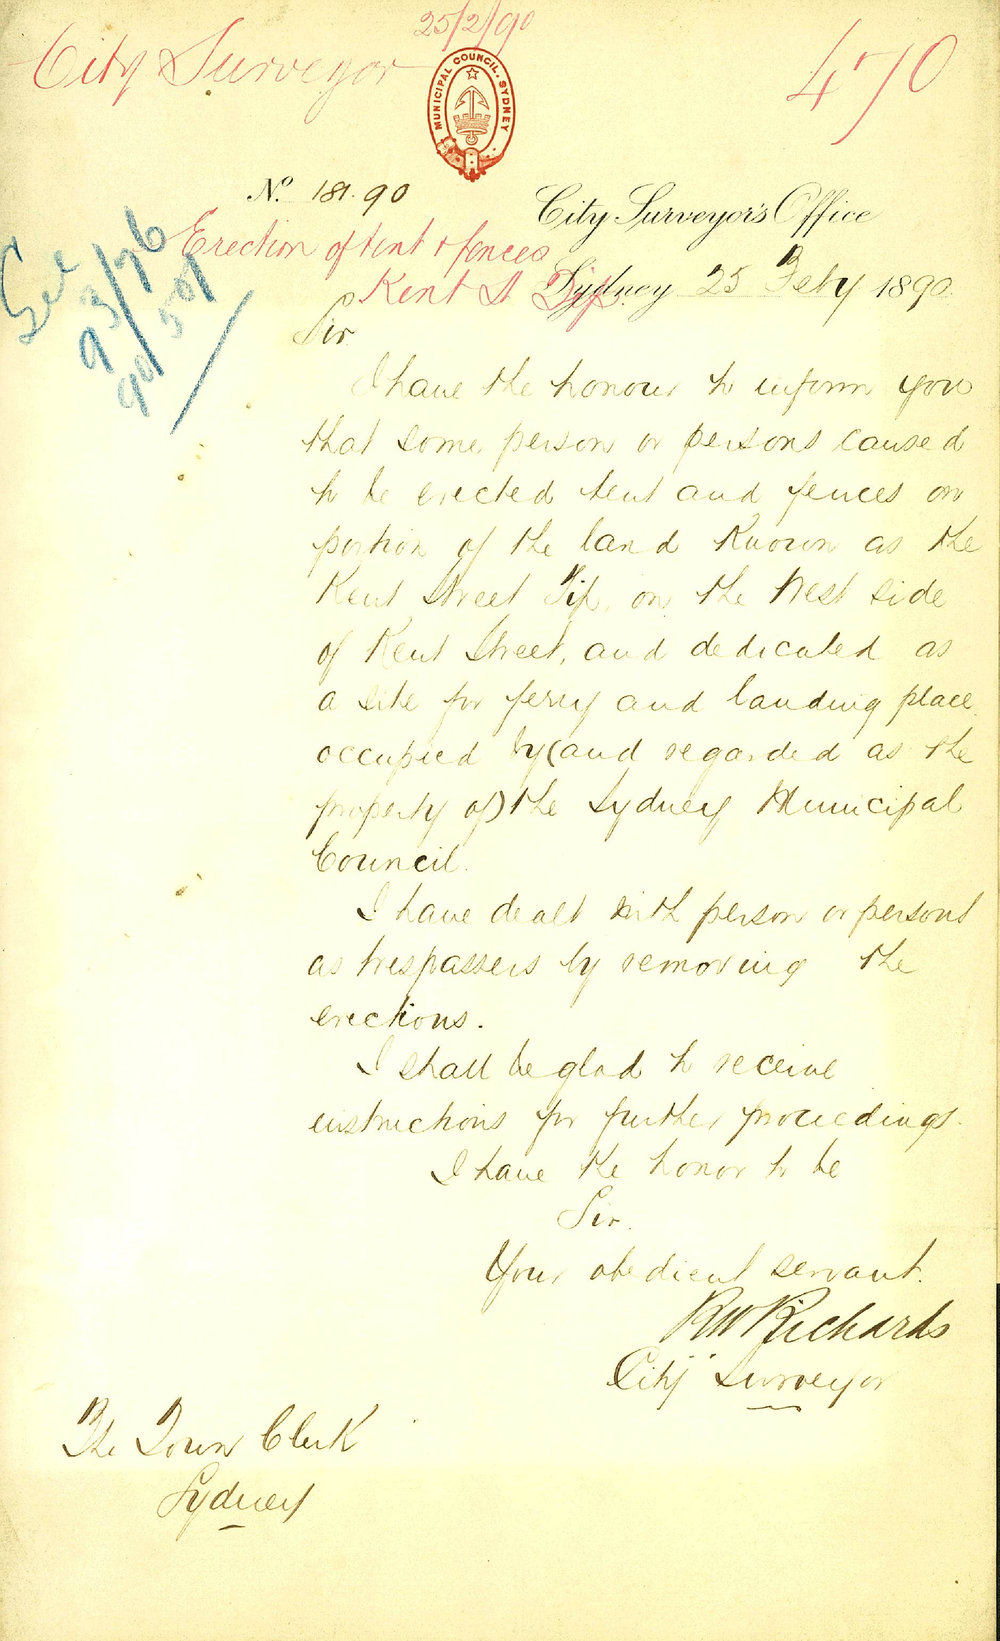 25/2/90
City Surveyor
470
MUNICIPAL COUNCIL. SYDNEY
No. 181.90
City Surveyor's Office
Erection of tent & fences
Kent St Tip
Sydney 25 Feby 1890
See
93/76
90/501
Sir
I have the honour to inform you
that some person or persons caused
to be erected tent and fences on
portion of the land known as the
Kent Street Tip, on the West side
of Kent Street, and dedicated as
a site for ferry and landing place
occupied by (and regarded as the
property of) the Sydney Municipal
Council.
I have dealt with person or persons
as trespassers by removing the
erections.
I shall be glad to receive
instructions for further proceedings.
I have the honor to be
Sir.
Your obedient servant.
RW Richards
City Surveyor
The Town Clerk
Sydney